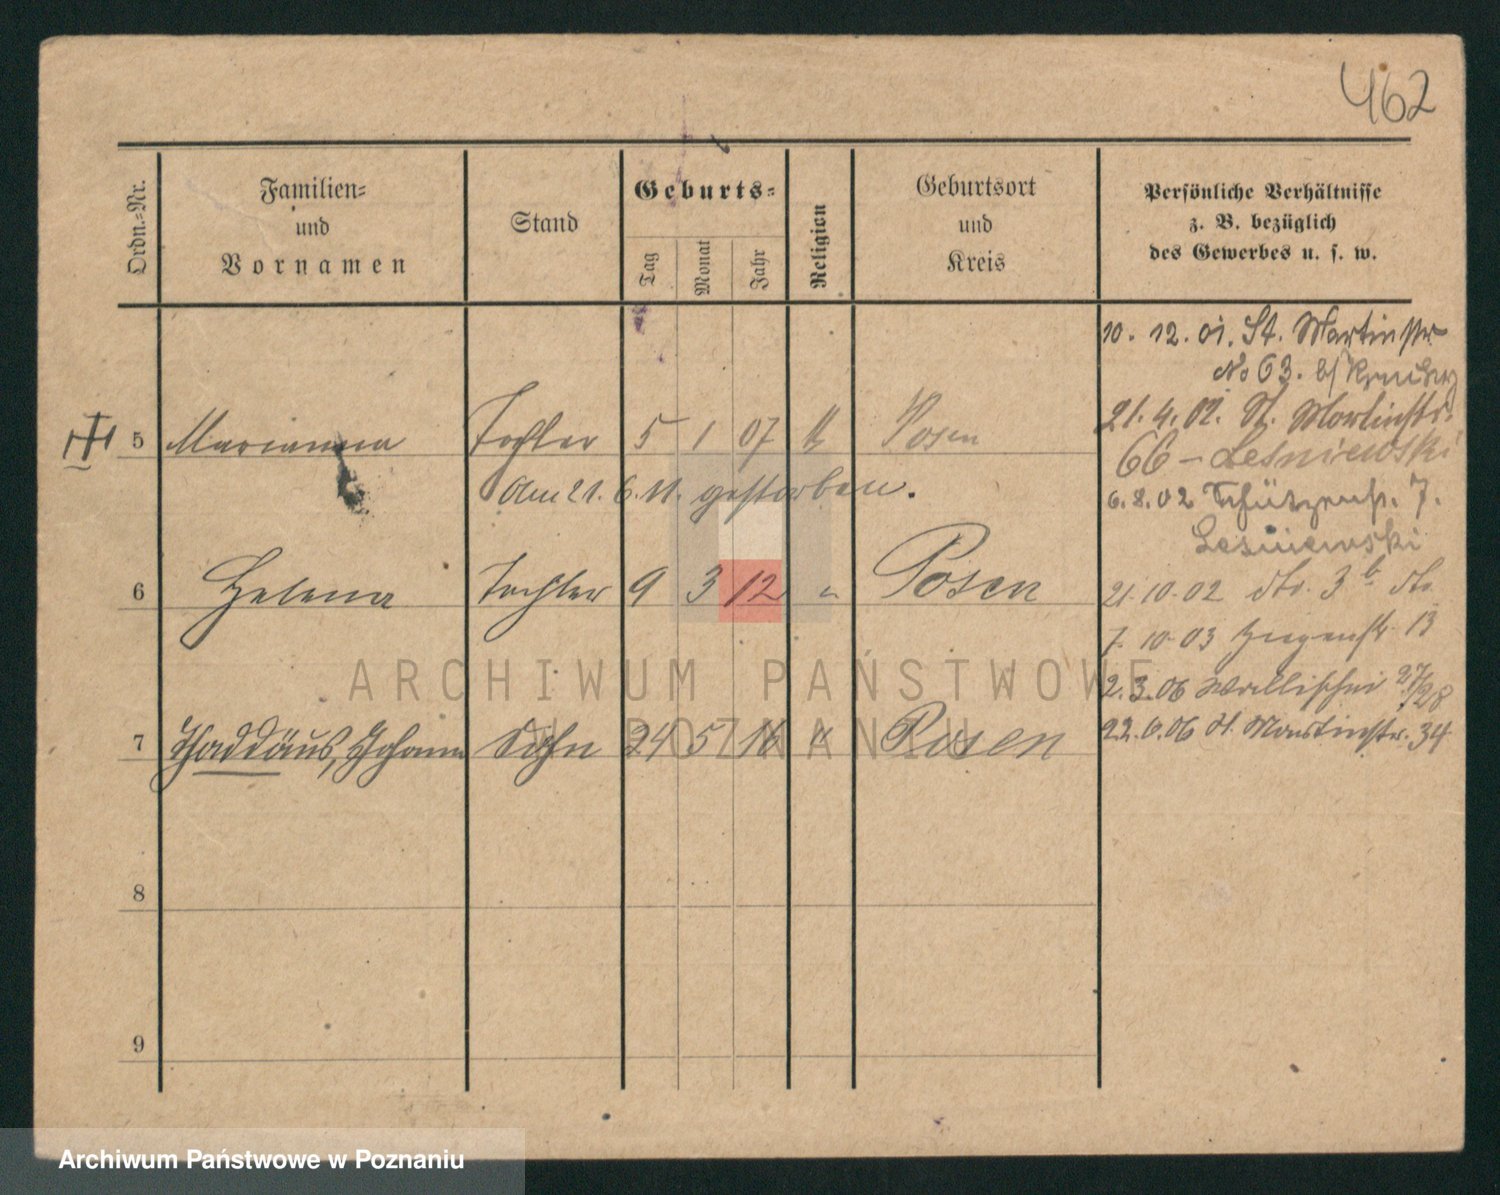 462
Ordn.-Nr.
Familien-
und
Vornamen
Stand
Geburts-
Tag
Monat
Jahr
Religion
Geburtsort
und
Kreis
Persönliche Verhältnisse
z. B. bezüglich
des Gewerbes u. s. w.
10. 12. 01. St. Martinstr
No 63. b/
21. 4. 02. St. Martinstr.
5 Marianna Tochter 5 1 07 k Posen
66 – Lesniewski
Am 21. 6. 11. gestorben.
6. 8. 02 Schützenstr. 7.
Lesniewski
6 Helena Tochter 9 3 12 " Posen
21. 10. 02 dto. 3 b dto.
7. 10. 03 Ziegenstr. 13
2. 3. 06 Wallischei 27/28
7 Thaddäus, Johann Sohn 24 5 16 " Posen
22. 9. 06 St. Martinstr. 34
8
9
ARCHIWUM PAŃSTWOWE
W POZNANIU
Archiwum Państwowe w Poznaniu